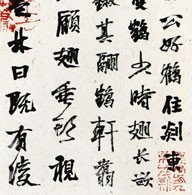 公好鶴住剡東
雙鶴少時翅長欲
鎩其翮鶴軒翥
顧翅垂頭視
林曰既有淩